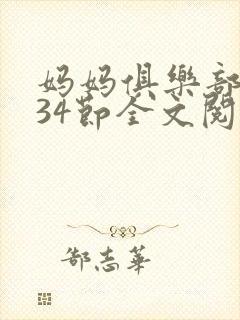 妈妈俱樂部
34節全文閱
郜志華